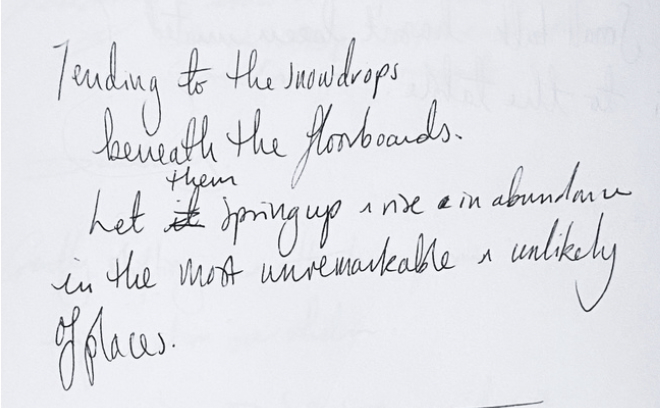 Tending to the snowdrops
beneath the floorboards.
them
Let it spring up & rise in abundance
in the most unremarkable & unlikely
of places.